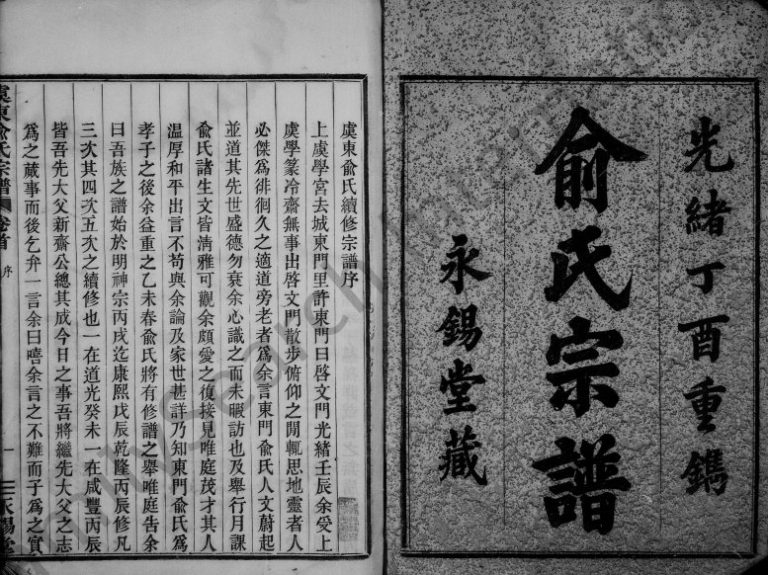 光緒丁酉重鐫
俞氏宗譜
永錫堂藏
虞東俞氏續修宗譜序
上虞學宮去城東門里許東門曰啓文門光緒壬辰余受上
虞學篆冷齋無事出啓文門散步俯仰之閒輒思地靈者人
必傑為徘徊久之適道旁老者為余言東門俞氏人文蔚起
並道其先世盛德勿衰余心識之而未暇訪也及舉行月課
俞氏諸生文皆清雅可觀余頗愛之復接見唯庭茂才其人
溫厚和平出言不苟與余論及家世甚詳乃知東門俞氏為
孝子之後余益重之乙未春俞氏將有修譜之舉唯庭告余
曰吾族之譜始於明神宗丙戌迄康熙戊辰乾隆丙辰修凡
三次其四次五次之續修也一在道光癸未一在咸豐丙辰
皆吾先大父新齋公總其成今日之事吾將繼先大父之志
為之蕆事而後乞弁一言余曰嘻余言之不難而子為之實
虞東俞氏宗譜 卷首 序 一 永錫堂